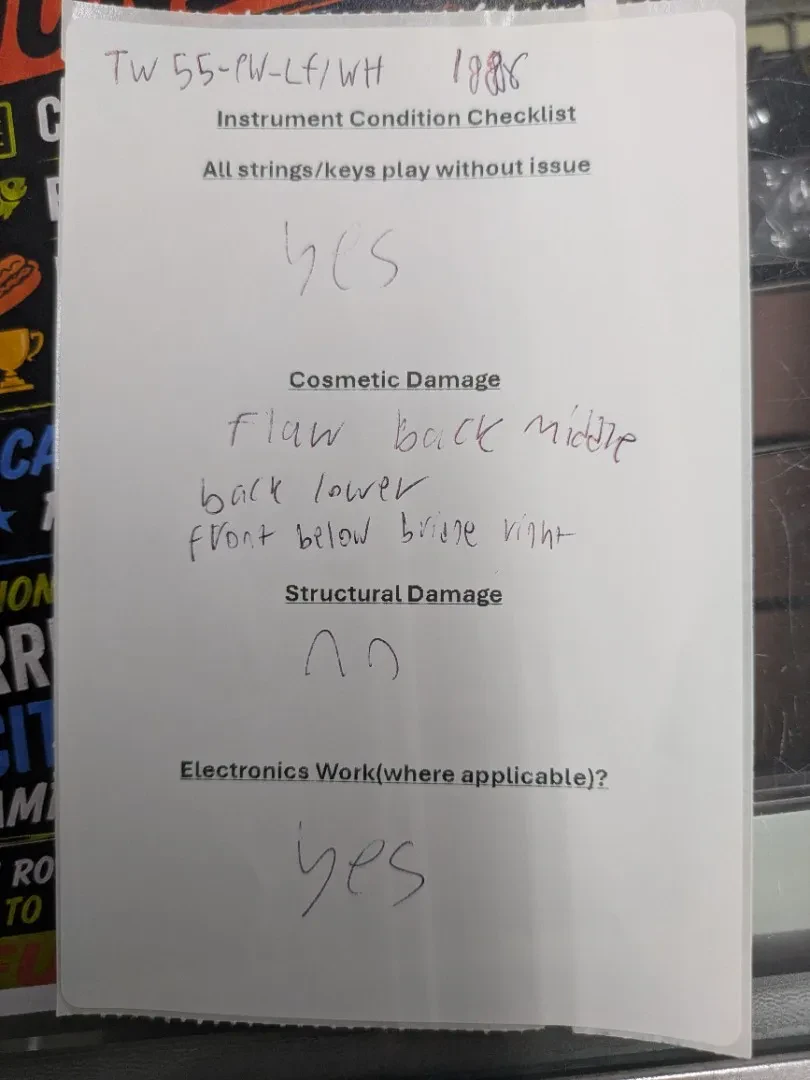 TW 55-PW-Lf/WH
Instrument Condition Checklist
All strings/keys play without issue
yes
Cosmetic Damage
Flaw back middle
back lower
front below bridge right
Structural Damage
no
Electronics Work(where applicable)?
yes
CA
ION
CIT
RO
TO